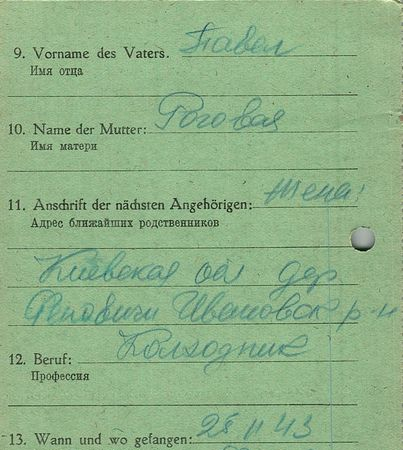 9. Vorname des Vaters. Павел
Имя отца
10. Name der Mutter: Роговая
Имя матери
11. Anschrift der nächsten Angehörigen: Жена:
Адрес ближайших родственников
Киевская обл дер
Ивановск р-н
12. Beruf: Колхозник
Профессия
13. Wann und wo gefangen: 25 11 43